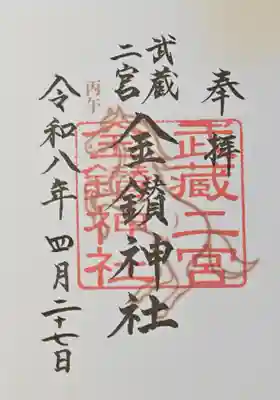 奉拝
武蔵
二宮
金鑚神社
丙午
令和八年 四月二十七日
武蔵二宮
金鑚神社